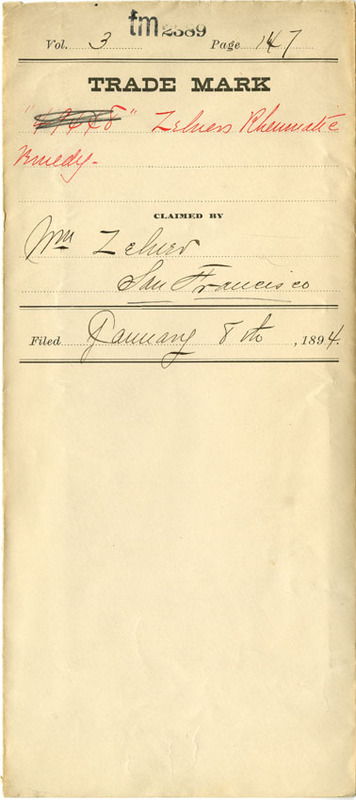 tm 2389
Vol. 3 Page 147
TRADE MARK
Zelners Rheumatic
Remedy-
CLAIMED BY
Wm Zelner
San Francisco
Filed January 8th, 1894.